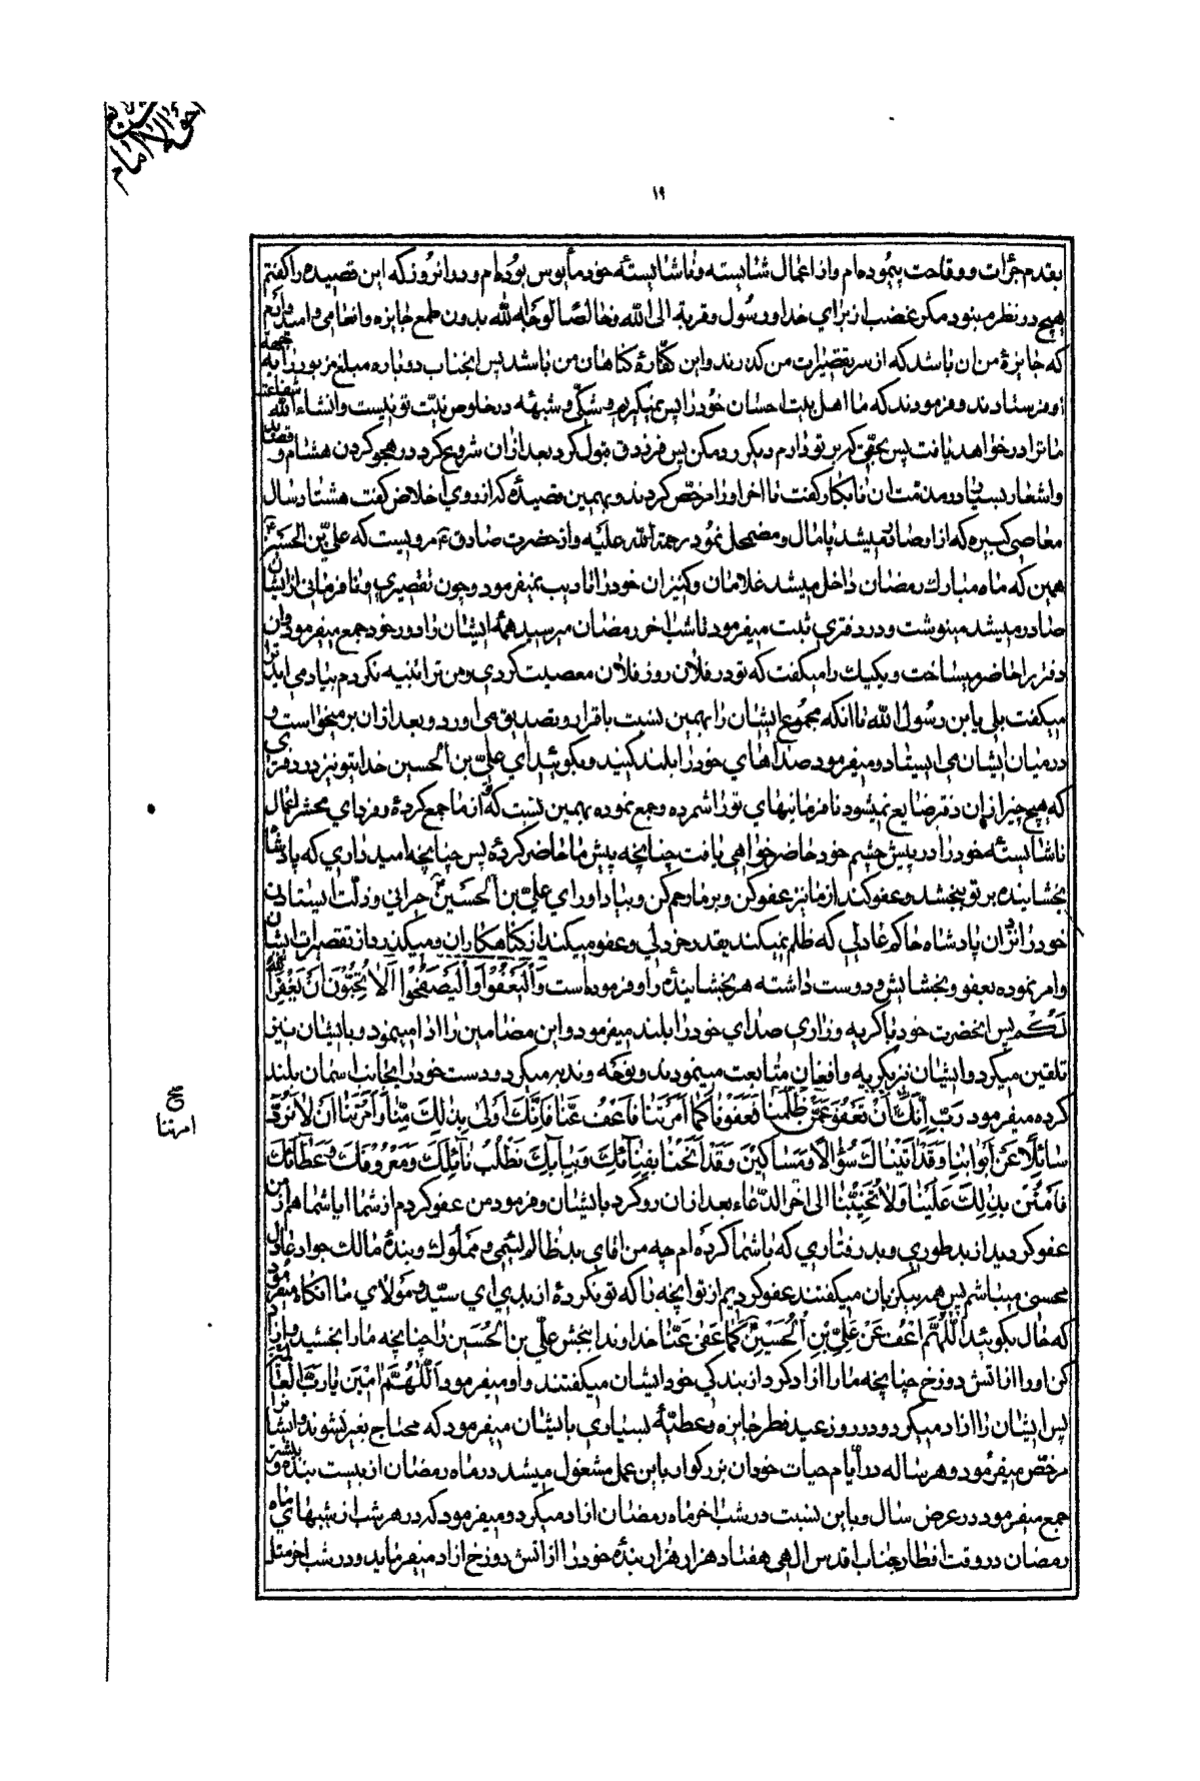 احوالات امام
۱۹
بقدم جرات و وقاحت پیموده‌ام و از اعمال شایسته و ناشایسته خود مأیوس بوده‌ام و در انروز که این قصیده را گفتم
هیچ در نظر مبنود مکر غضب از برای خدا و رسول و قربة الی الله و خالصا لوجه الله بدون طمع جایزه و انعامی و امید وارم
که جایزهٔ من ان باشد که از سر تقصیرات من کذرند و این کفارهٔ کناهان من باشد پس انجناب دوباره مبلغ مزبور را به جهة
او فرستادند و فرمودند که ما اهل بیت احسان خود را پس نمیکیریم و شکی و شبهه در خلوص نیت تو نیست و انشاء الله شفاعت
ما ترا در خواهد یافت پس بحقی که بر تو دارم دیکر رد مکن پس فرزدق قبول کرد بعد از ان شروع کرد در هجو کردن هشام و قصاید
و اشعار بسیار در مذمت ان نابکار گفت تا اخر او را مرخص کردند و بهمین قصیدهٔ که از روی اخلاص کفت هشتاد سال
معاصی کبیره که از او صادر میشد پامال و مضمحل نمود رحمة الله علیه و از حضرت صادق ع مرویست که علی بن الحسین ع
همین که ماه مبارک رمضان داخل میشد غلامان و کنیزان خود را تادیب نمیفرمود و چون تقصیری و نافرمانی از ایشان
صادر میشد مینوشت و در دفتری ثبت میفرمود تا شب اخر رمضان میرسید همهٔ ایشان را دور خود جمع میفرمود و ان
دفتر را حاضر میساخت و یکیک را میکفت که تو در فلان روز فلان معصیت کردی و من ترا تنبیه نکردم بیاد می اید ترا
میکفت بلی یا بن رسول الله تا انکه مجموع ایشان را بهمین نسبت باقرار و تصدیق می اورد و بعد از ان بر میخواست و
در میان ایشان می ایستاد و میفرمود صداهای خود را بلند کنید و بکوئید ای علی بن الحسین خدای تو نیز در دفتری
که هیچ چیز از ان دفتر ضایع نمیشود نافرمانیهای تو را شمرده و جمع نموده بهمین نسبت که از ما جمع کردهٔ و فردای محشر اعمال
ناشایستهٔ خود را در پیش چشم خود حاضر خواهی یافت چنانچه پیش ما حاضر کردهٔ پس چنانچه امید داری که پادشاه
بخشاینده بر تو ببخشد و عفو کند از ما نیز عفو کن و بر ما رحم کن و بیاد اور ای علی بن الحسین ع حیرانی و ذلت ایستادن
خود را نزد ان پادشاه حاکم عادلی که ظلم نمیکند بقدر خردلی و عفو میکند از کناهکاران و میکذرد از تقصیرات ایشان
و امر نموده بعفو و بخشایش و دوست داشته هر بخشایندهٔ را و فرموده است وَلْیَعْفُوا وَلْیَصْفَحُوا اَلا تُحِبُّونَ اَنْ یَغْفِرَ اللهُ
لَکُمْ پس انحضرت خود با کریه و زاری صدای خود را بلند میفرمود و این مضامین را ادا مینمود و بایشان نیز
تلقین میکرد و ایشان نیز بکریه و افغان متابعت مینمودند و نوحه و ندبه میکرد و دست خود را بجانب اسمان بلند
کرده میفرمود رَبِّ اِنَّکَ اَمَرْتَنا اَنْ نَعْفُوَ عَمَّنْ ظَلَمَنا فَعَفَوْنا کَما اَمَرْتَنا فَاعْفُ عَنّا فَاِنَّکَ اَوْلی بِذلِکَ مِنّا وَاَمَرْتَنا اَنْ لا نَرُدَّ
صح
امرتنا
سائِلاً عَنْ اَبْوابِنا وَقَدْ اَتَیْناکَ سُؤّالاً وَمَساکینَ وَقَدْ اَنَخْنا بِفِنائِکَ وَبِبابِکَ نَطْلُبُ نائِلَکَ وَمَعْرُوفَکَ وَعَطائَکَ
فَامْنُنْ بِذلِکَ عَلَیْنا وَلا تُخَیِّبْنا الی اخر الدعاء بعد از ان رو کرد بایشان و فرمود من عفو کردم از شما ایا شما هم از من
عفو کردید از بد طوری و بد رفتاری که باشما کرده‌ام چه من اقای بد ظالم لئیمی و مملوک و بندهٔ مالک جواد عادل
محسنی میباشم پس همه بیکزبان میکفتند عفو کردیم از تو انچه را که تو نکردهٔ از بدی ای سید و مولای ما انکاه میفرمود
که حال بکوئید اَللّهُمَّ اعْفُ عَنْ عَلِیِّ بْنِ الْحُسَیْنِ کَما عَفی عَنّا خداوندا ببخش علی بن الحسین را چنانچه ما را بخشید و ازاد
کن او را از اتش دوزخ چنانچه ما را ازاد کرد از بندکی خود ایشان میکفتند و او میفرمود اَللّهُمَّ امینَ یا رَبَّ الْعالَمینَ
پس ایشان را ازاد میکرد و در روز عید فطر جایزه و عطیهٔ بسیاری بایشان میفرمود که محتاج بغیر نشوند و ایشان را
مرخص میفرمود و هر ساله در ایام حیات خود ان بزرکوار باین عمل مشغول میشد در ماه رمضان از بیست بنده و بیشتر
جمع میفرمود در عرض سال و باین نسبت در شب اخر ماه رمضان ازاد میکرد و میفرمود که در هر شب از شبهای ماه
رمضان در وقت افطار جناب اقدس الهی هفتاد هزار هزار بندهٔ خود را از اتش دوزخ ازاد میفرماید و در شب اخر مثل